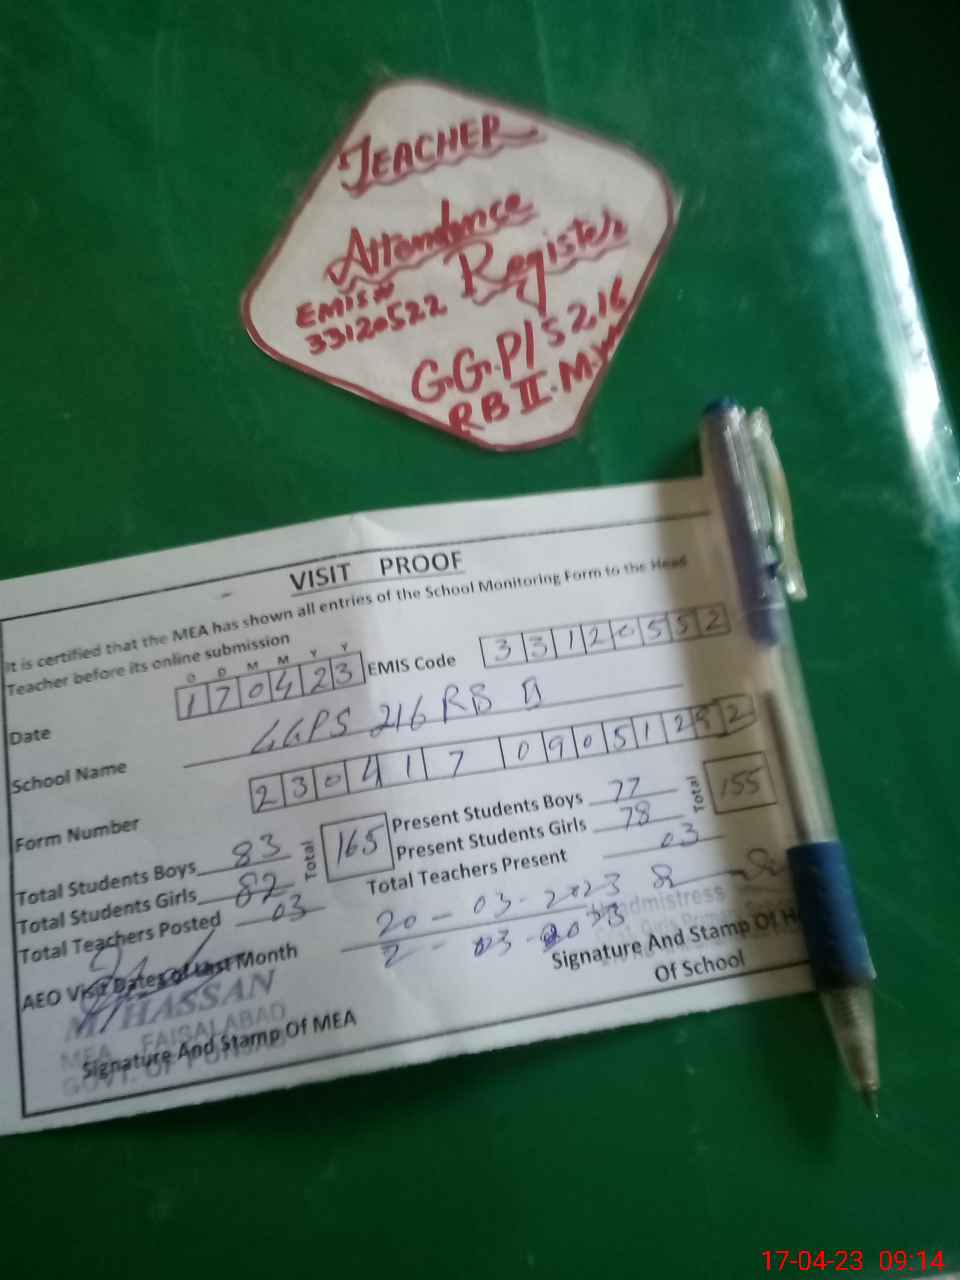 TEACHER
Attendance
Register
EMIS#
33120522
G.G.P/S 216
RB II.M.
VISIT PROOF
It is certified that the MEA has shown all entries of the School Monitoring Form to the Head
Teacher before its online submission
D D M M Y Y
Date 1 7 0 4 2 3 EMIS Code 3 3 1 2 0 5 5 2
School Name GGPS 216 RB II
Form Number 2 3 0 4 1 7 0 9 0 5 1 2 5 2
Total Students Boys 83 Total 165 Present Students Boys 77 Total 155
Total Students Girls 82 Present Students Girls 78
Total Teachers Posted 03 Total Teachers Present 03
AEO Visit Dates of Last Month 20 - 03 - 2023
2 - 03 - 2023
Headmistress
Signature And Stamp Of H
Of School
M. HASSAN
MEA FAISALABAD
GOVT. OF PUNJAB
Signature And Stamp Of MEA
17-04-23 09:14